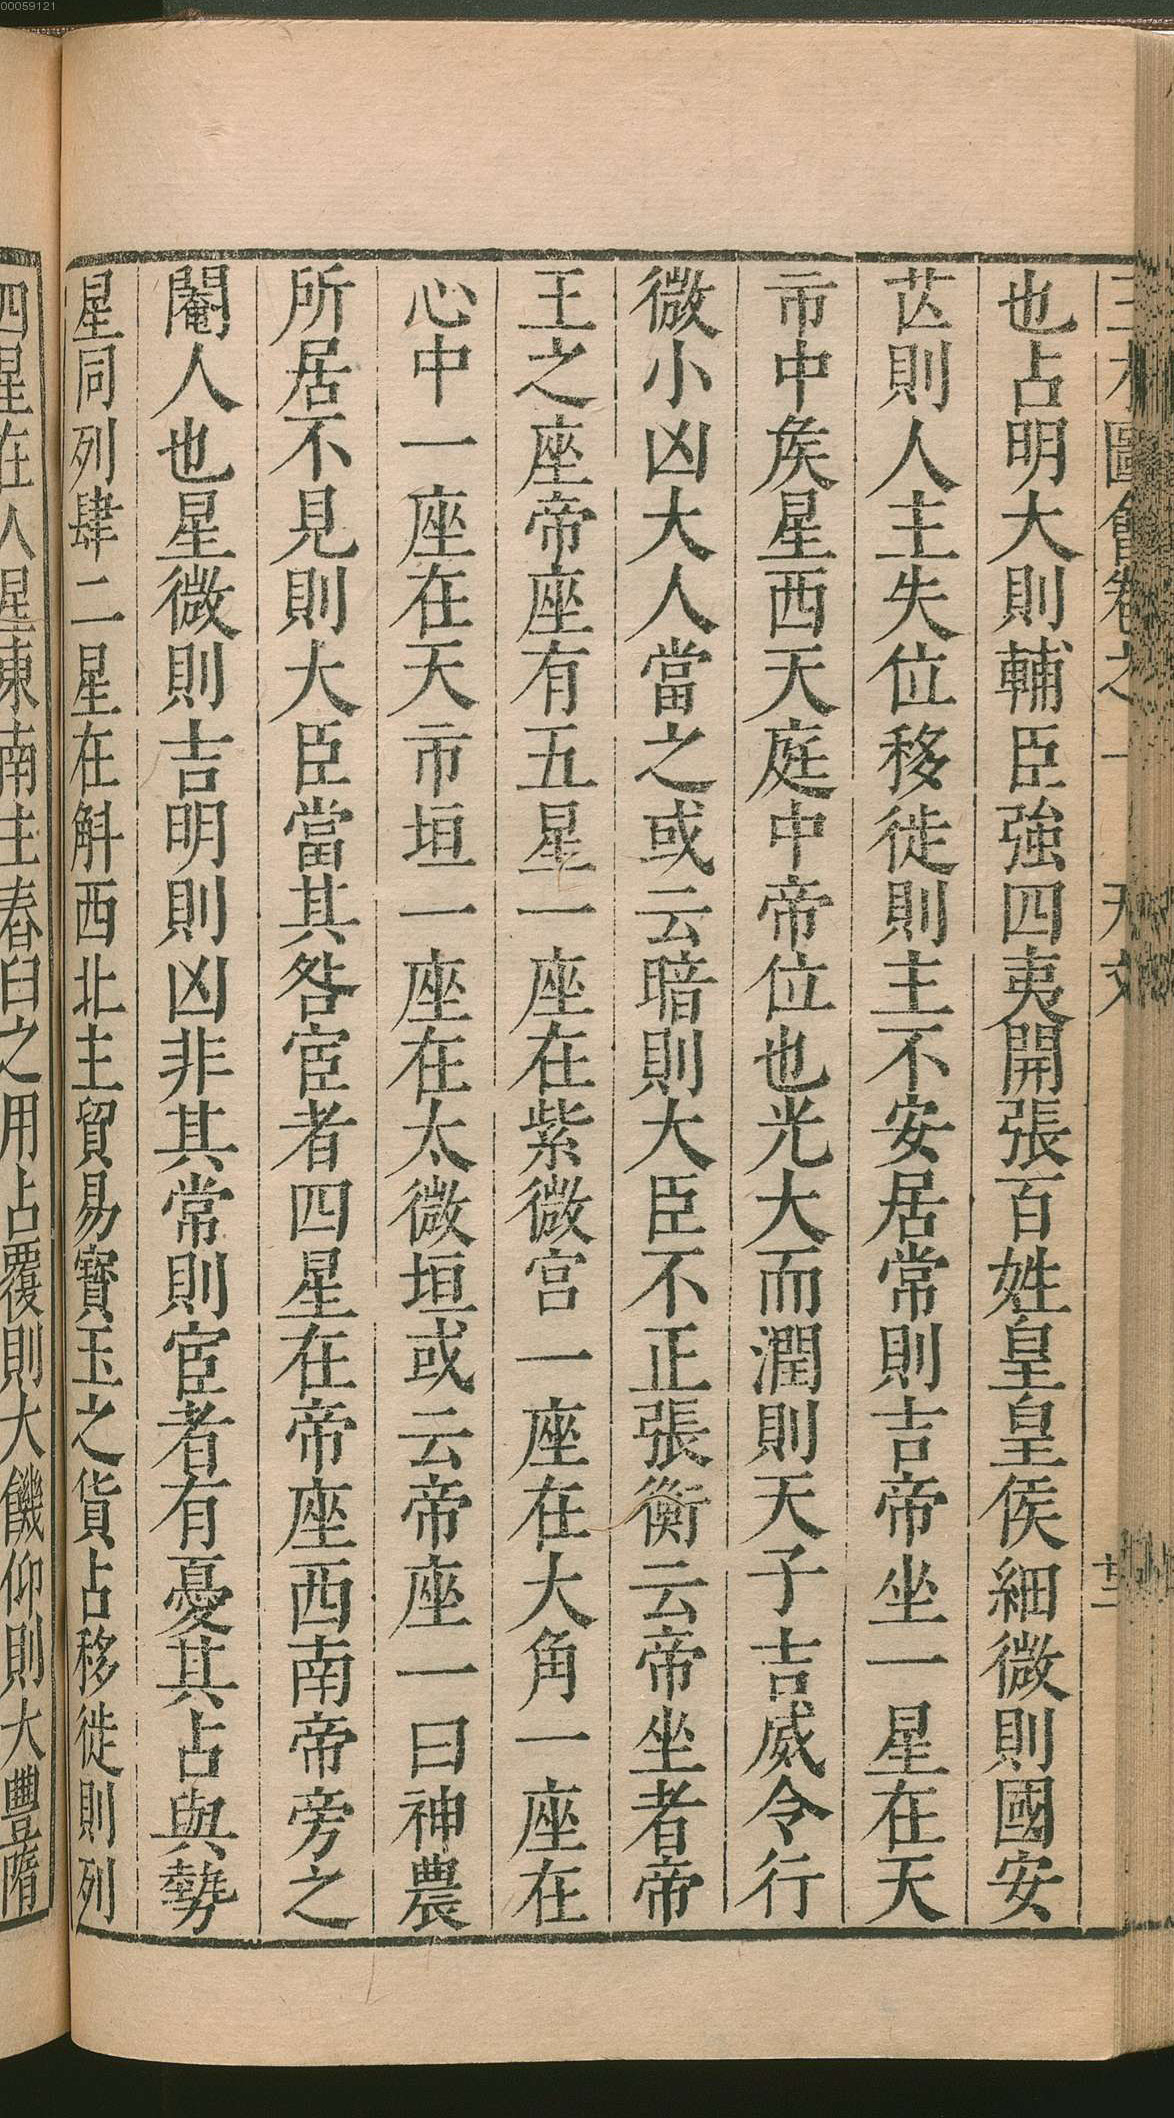 00059121
也占明大則輔臣強四夷開張百姓皇皇侯細微則國安
芒則人主失位移徙則主不安居常則吉帝坐一星在天
市中矦星西天庭中帝位也光大而潤則天子吉威令行
微小凶大人當之或云暗則大臣不正張衡云帝坐者帝
王之座帝座有五星一座在紫微宫一座在大角一座在
心中一座在天市垣一座在太微垣或云帝座一曰神農
所居不見則大臣當其咎宦者四星在帝座西南帝旁之
閹人也星微則吉明則凶非其常則宦者有憂其占與勢
星同列肆二星在斛西北主貿易寳玉之貨占移徙則列
四星在人星東南主舂臼之用占覆則大饑仰則大豐隋